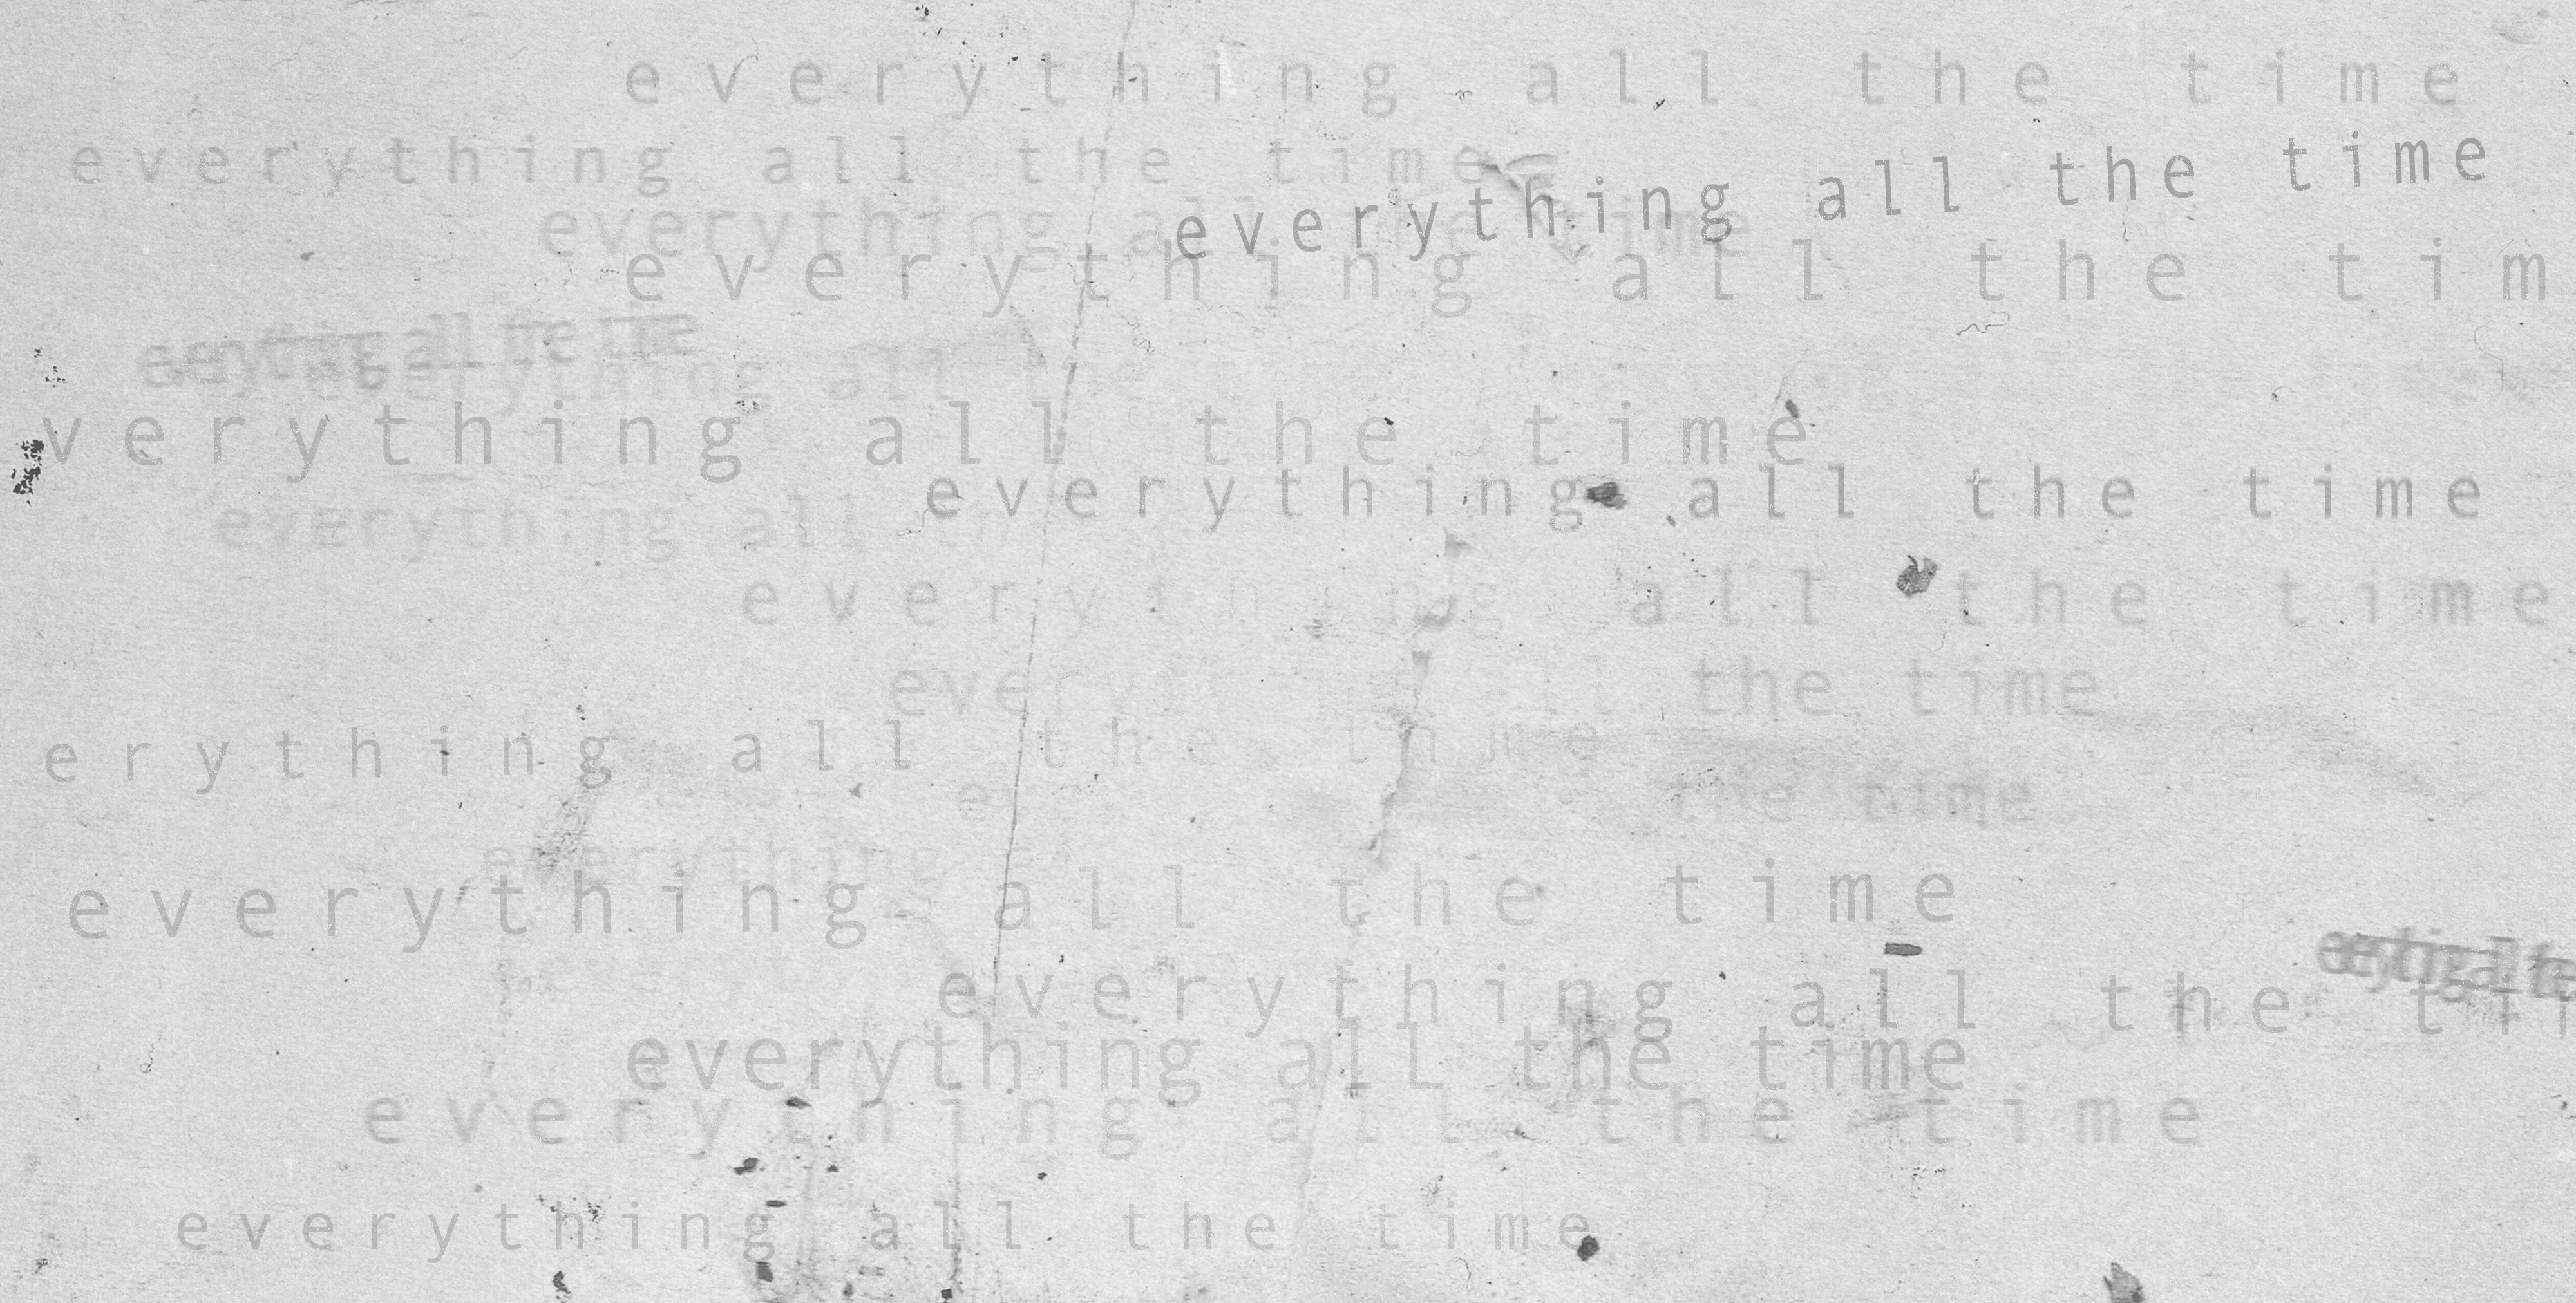 everything all the time
everything all the time
everything all the time
everything all time
everything all the tim
everything all the
everything all the
verything all the time
everything all the time
everything all
everything all the time
everything all the time
erything all the time
the time
everything
everything all the time
everything all the ti
everything all the time
everything all the time
everything all the time